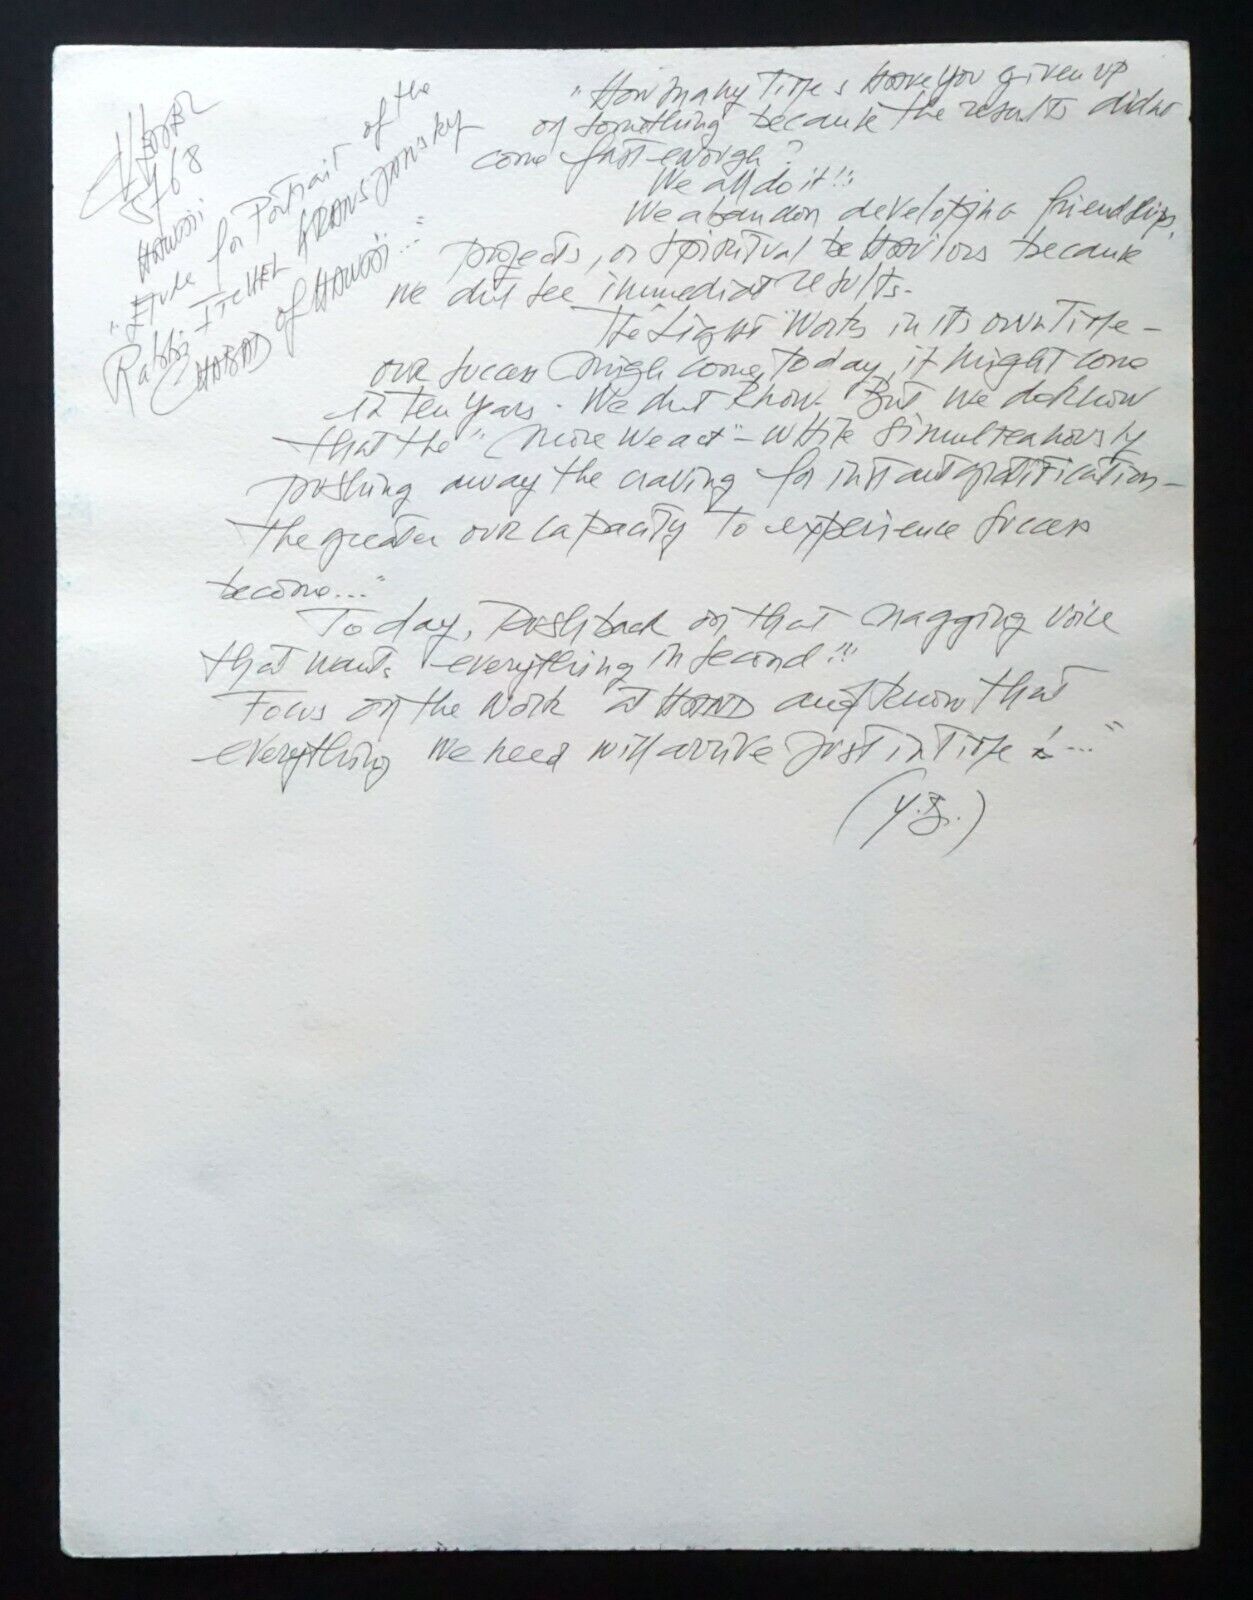 5768
HAWAII
"Etude for Portrait of the
Rabbi ITCHEL KRASNJANSKY
CHABAD of HAWAII..."
"How many times HAVE you given up
on something because the results did not
come fast enough?
We all do it!!!
We abandon developing friendships,
projects, or spiritual beHAViors because
we dont see immediat results.
The Light Works in its own Time –
our success migh come today, it might come
in ten years. We dont know But we do know
that the "more we act" – while simulteanously
pushing away the craving for instant gratification –
the greater our capacity to experience success
become..."
Today, push back on that nagging voice
that wants everything in second!!!
Focus on the Work at HAND and know that
everything we need will arrive just in time!..."
(Y.B.)